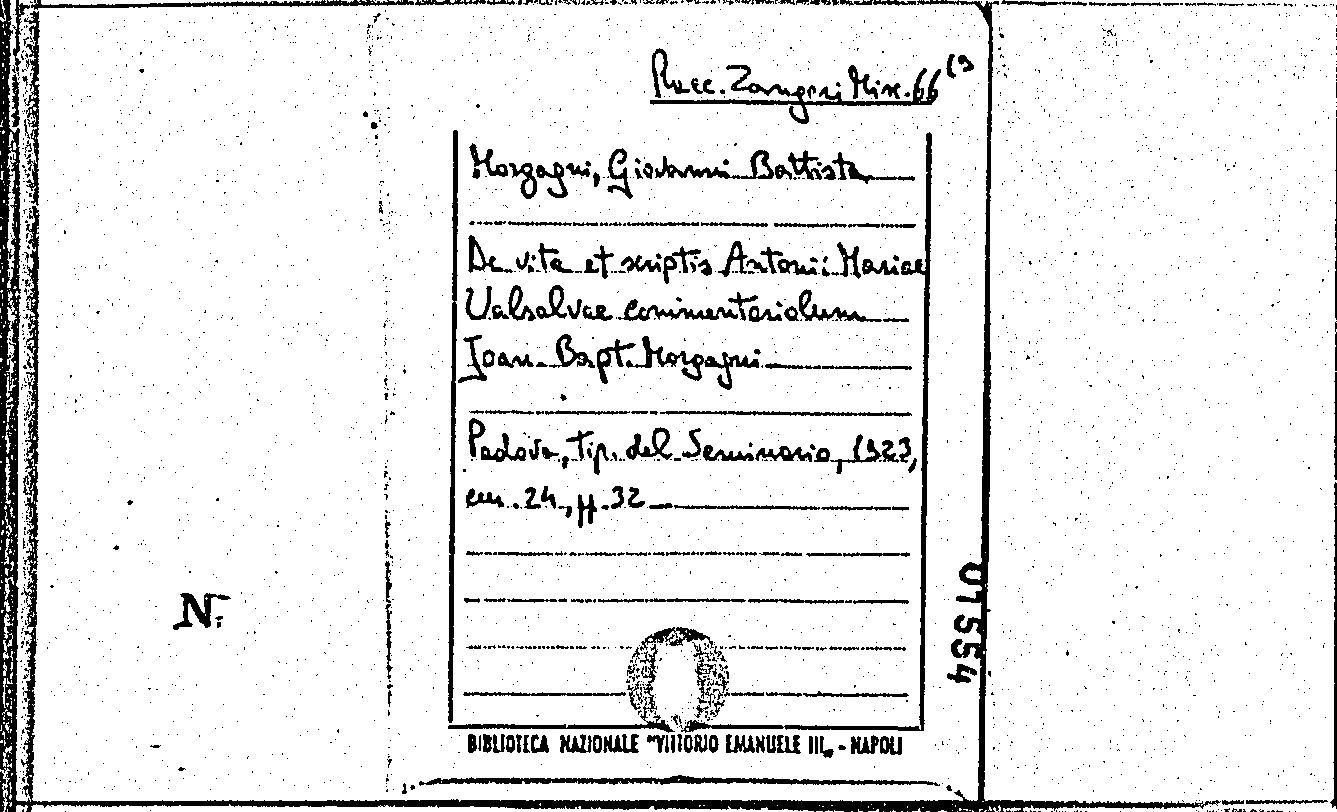 Racc. Zangari Misc. 66
Morgagni, Giovanni Battista
De vita et scriptis Antonii Mariae
Valsalvae commentariolum
Joan. Bapt. Morgagni
Padova, tip. del Seminario, 1923,
cm. 24, pp. 32
N.
01554
BIBLIOTECA NAZIONALE "VITTORIO EMANUELE III„ - NAPOLI